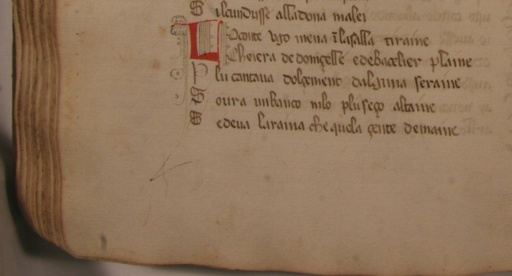 S il cundusse alladona malei
L o conte ugo mena i lasalla tiraine
C he iera de donçelle e debaçelier plaine
P lu cantava dolçement dalguna seraine
S oura un banco nilo plu seço altaine
S edeva la raina che quela çente demaine